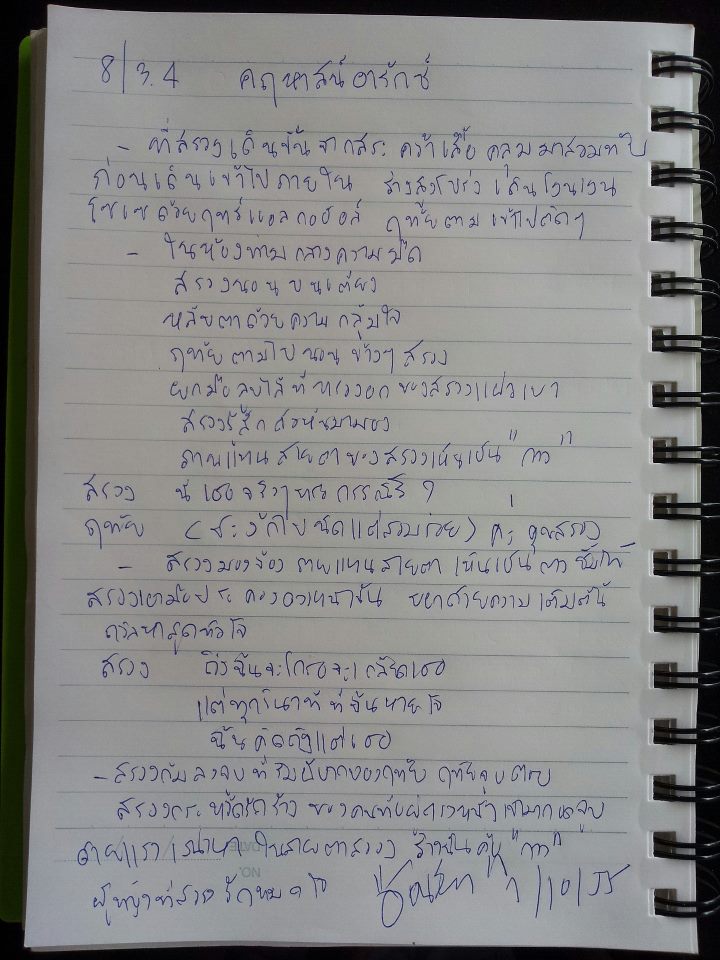 8/3.4 คฤหาสน์อารักษ์
- ที่สรวงเดินขึ้นจากสระ คว้าเสื้อคลุมมาสวมทับ
ก่อนเดินเข้าไปภายใน ร่างสูงโปร่งเดินโงนเงน
โซเซด้วยฤทธิ์แอลกอฮอล์ ฤทัยตามเข้าไปติดๆ
- ในห้องท่ามกลางความมืด
สรวงนอนบนเตียง
หลับตาด้วยความกลุ้มใจ
ฤทัยตามไปนอนข้างๆ สรวง
ยกมือลูบไล้ที่ทรวงอกของสรวงแผ่วเบา
สรวงรู้สึกตัวหันมามอง
ภาพแทนสายตาของสรวงเห็นเป็น "กาว"
สรวง นี่เธอจริงๆ หรือ
ฤทัย (ชะงักไปนิดแต่สวมรอย) ค่ะ คุณสรวง
- สรวงมองจ้อง ภาพแทนสายตา เห็นเป็น
สรวงเอามือประคองวงหน้านั้น ความตื้นตัน
หัวใจ
สรวง ถึงฉันจะโกรธจะเกลียดเธอ
แต่ทุกวินาทีที่ฉันหายใจ
ฉันคิดถึงแต่เธอ
- สรวงก้มลงจูบที่ริมฝีปากของฤทัย ฤทัยจูบตอบ
สรวงกระหวัดรัดร่างของคน
ในสายตาสรวง ร่างนั้นคือ "กาว"
ผู้หญิงที่สรวงรักหมดใจ 1/10/55